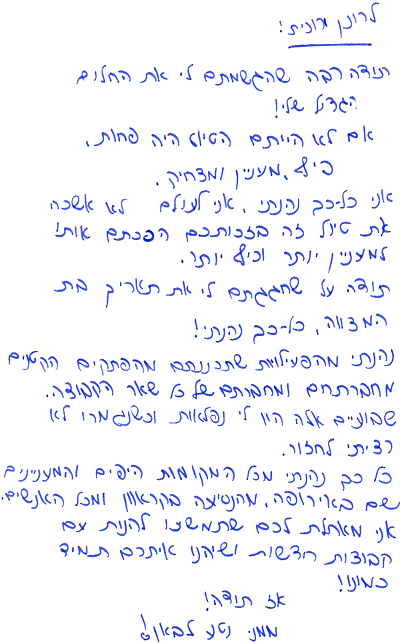 לרונן ורונית!
תודה רבה שהגשמתם לי את החלום
הגדול שלי!
אם לא הייתם הטיול היה פחות,
כיף, מעניין ומצחיק.
אני כל-כך נהנתי, אני לעולם לא אשכח
את טיול זה בזכותכם הפכתם אותו
למעניין יותר וכיף יותר.
תודה על שחגגתם לי את תאריך בת
המצווה, כל-כך נהנתי!
נהנתי מהפעילויות שתכננתם מהפתקים הקטנים
מחברתהם ומחברתם של כל שאר הקבוצה.
שבועיים אלה היו לי נפלאות וכשנגמרו לא
רציתי לחזור.
כל כך נהנתי מכל המקומות היפים והמעניינים
שם באירופה, מהנסיעה בקראוון ומכל האנשים.
אני מאחלת לכם שתמשיכו להנות עם
קבוצות חדשות ושיהנו איתכם תמיד
כמונו!
אז תודה!
ממני נטע לבאון!